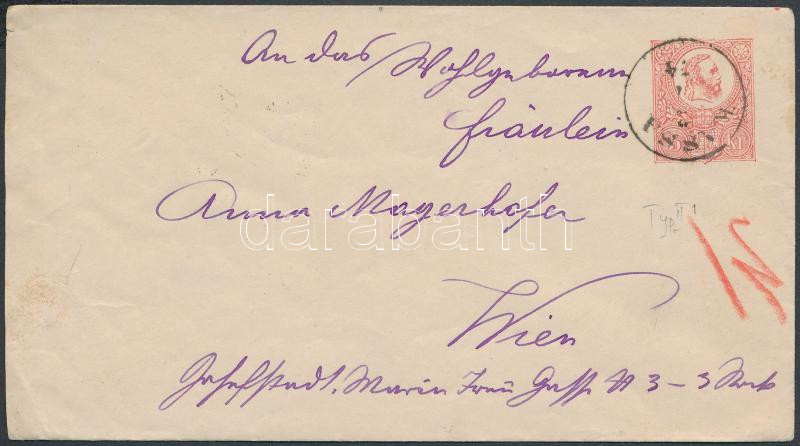 An das Wohlgeborene
Fräulein
Anna Mayerhofer
Wien
Josefstadt. Maria Treu Gasse № 3 - 3 Stock
Typ II
darabanth